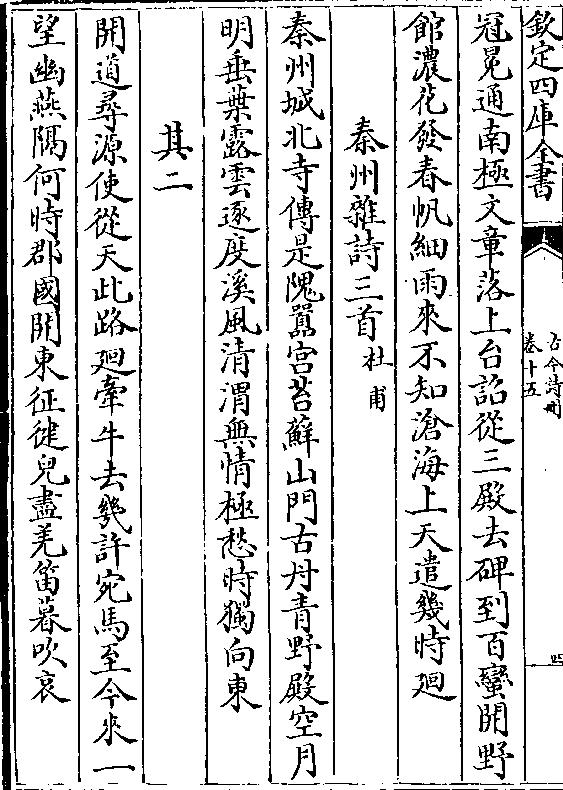 欽定四庫全書
古今詩刪
卷十五
四
冠冕通南極文章落上台詔從三殿去碑到百蠻開野
館濃花發春帆細雨來不知滄海上天遣幾時廻
秦州雜詩三首杜甫
秦州城北寺傳是隗囂宮苔蘚山門古丹青野殿空月
明垂葉露雲逐度溪風清渭無情極愁時獨向東
其二
聞道尋源使從天此路廻牽牛去幾許宛馬至今來一
望幽燕隔何時郡國開東征健兒盡羌笛暮吹哀